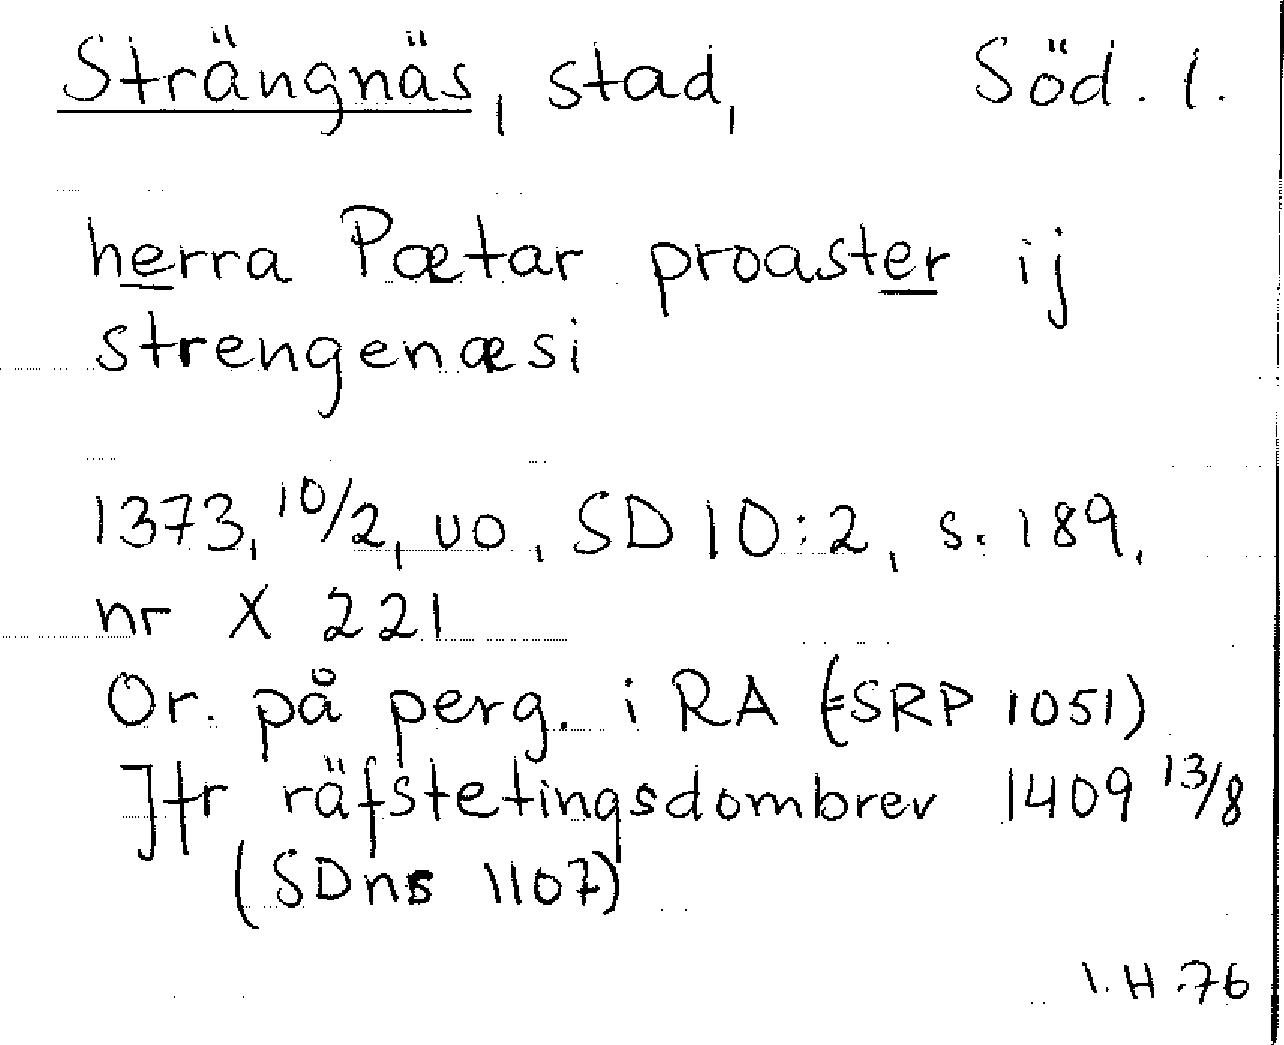 Strängnäs, stad, Söd. l.
herra Pætar proaster ij
strengenæsi
1373, 10/2, uo, SD 10:2, s. 189,
nr X 221
Or. på perg. i RA (=SRP 1051)
Jfr räfstetingsdombrev 1409 13/8
(SDns 1107)
I.H.76